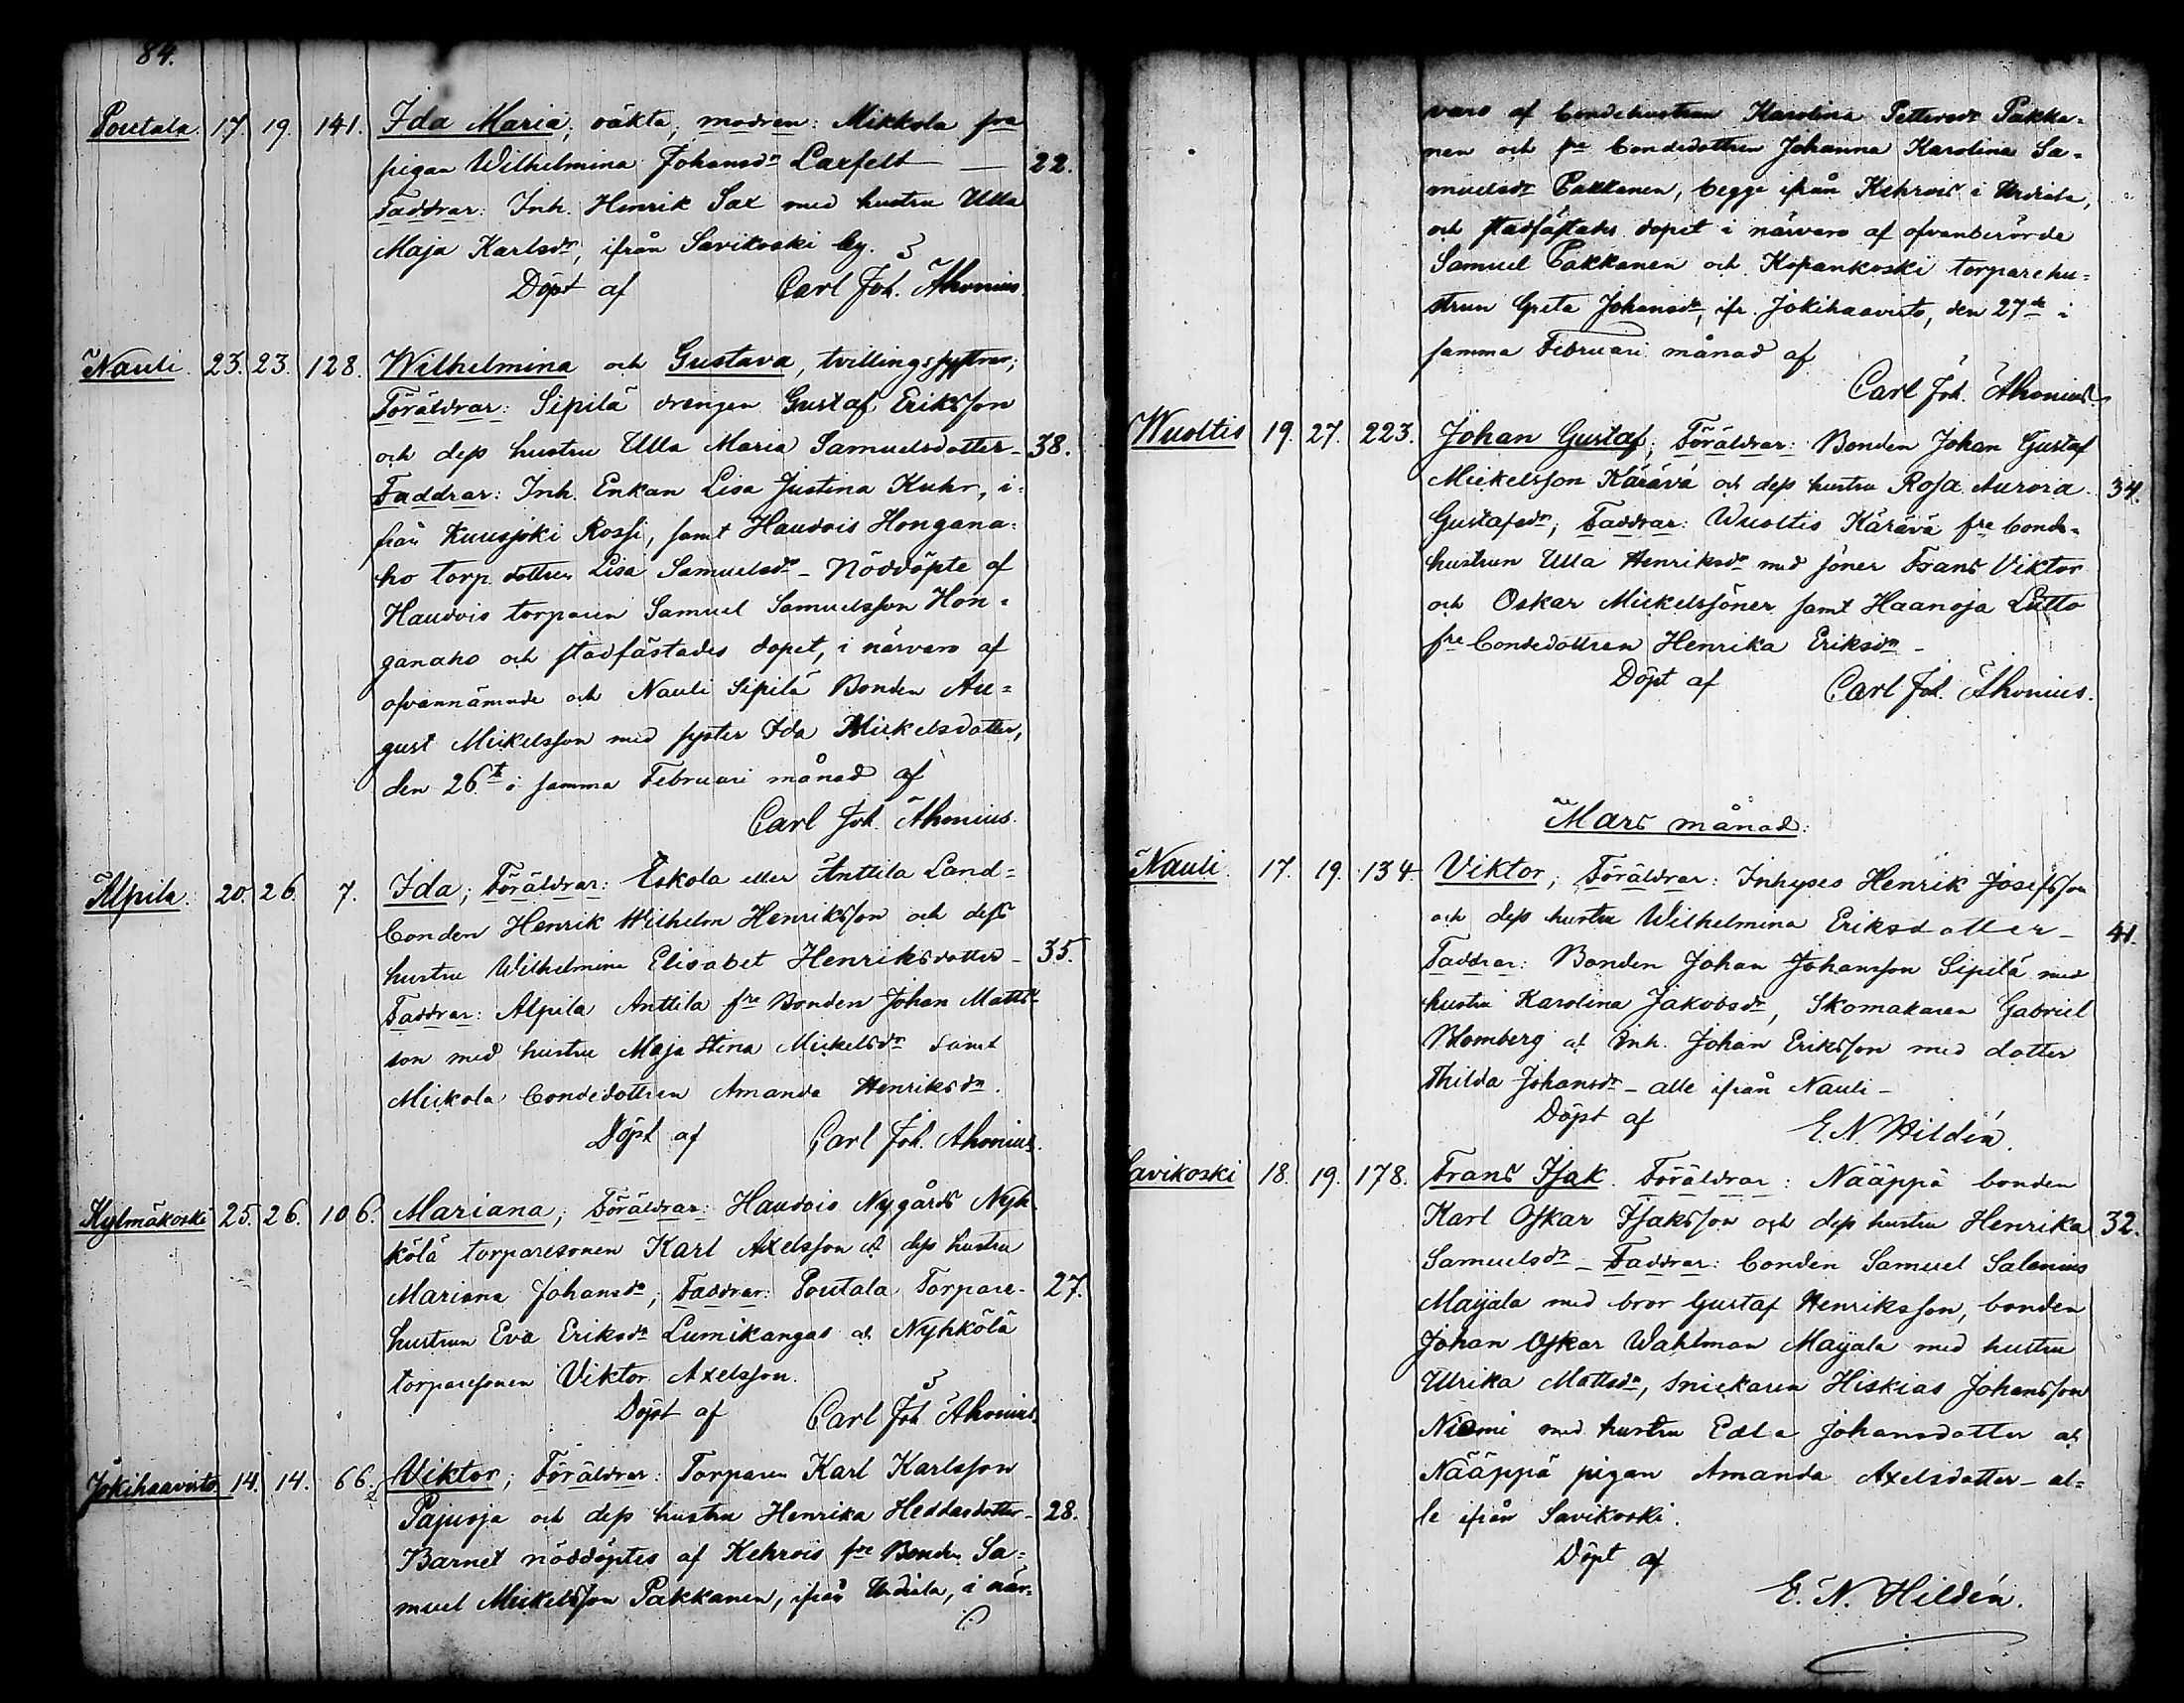 84.
Poutala. 17. 19. 141. Ida Maria; oäkta, modren: Mikkola fra
pigan Wilhelmina Johansdr Laxfelt — 22.
Faddrar: Inh. Henrik Sax med hustru Ulla
Maja Karlsdr, ifrån Savikoski by.
Döpt af Carl Joh. Ahonius.
Nauli. 23. 23. 128. Wilhelmina och Gustava, tvillingssystrar;
Föräldrar: Sipilä drengen Gustaf Eriksson
och dess hustru Ulla Maria Samuelsdotter - 38.
Faddrar: Inh. Enkan Lisa Justina Kuhr, i-
från Kuusjoki Rossi, samt Haudois Hongana-
ho torp. dottren Lisa Samuelsdr - Nöddöpte af
Haudois torparen Samuel Samuelsson Hon-
ganaho och stadfästades dopet, i närvaro af
ofvannämnde och Nauli Sipilä Bonden Au-
gust Mickelsson med syster Ida Mickelsdotter,
den 26te i samma Februari månad af
Carl Joh. Ahonius.
Alpila. 20. 26. 7. Ida; Föräldrar: Eskola eller Anttila Land-
bonden Henrik Wilhelm Henriksson och dess
hustru Wilhelmina Elisabet Henriksdotter - 35.
Faddrar: Alpila Anttila fre Bonden Johan Matts-
son med hustru Maja Stina Mickelsdr samt
Mickola bondedottren Amanda Henriksdr.
Döpt af Carl Joh. Ahonius.
Kylmäkoski 25. 26. 106. Mariana; Föräldrar: Haudois Nygårds Nyh-
kölä torparesonen Karl Axelsson och dess hustru
Mariana Johansdr; Faddrar: Poutala Torpare- 27.
hustrun Eva Eriksdr Lumikangas och Nyhkölä
torparesonen Viktor Axelsson.
Döpt af Carl Joh. Ahonius.
Jokihaavisto 14. 14. 66. Viktor; Föräldrar: Torparen Karl Karlsson
Pajuoja och dess hustru Henrika Heddasdotter - 28.
Barnet nöddöptes af Kehrois fre Bonden Sa-
muel Mickelsson Pakkanen, ifrån Urdiala, i när-
varo af bondehustrun Karolina Pettersdr Pakka-
nen och fre bondedottren Johanna Karolina Sa-
muelsdr Pakkanen, begge ifrån Kehrois i Urdiala,
och stadfästades dopet i närvaro af ofvanberörde
Samuel Pakkanen och Kopankoski torparehu-
strun Greta Johansdr, ifr. Jokihaavisto, den 27de i
samma Februari månad af
Carl Joh. Ahonius.
Wuoltis 19. 27. 223. Johan Gustaf; Föräldrar: Bonden Johan Gustaf
Mickelsson Kärävä och dess hustru Rosa Aurora 34.
Gustafsdr; Faddrar: Wuoltis Kärävä fre bonde-
hustrun Ulla Henriksdr med söner Frans Viktor
och Oskar Mickelssöner samt Haanoja Lutto
fre bondedottren Henrika Eriksdr -
Döpt af Carl Joh. Ahonius.
Mars månad:
Nauli. 17. 19. 134. Viktor; Föräldrar: Inhyses Henrik Josefsson
och dess hustru Wilhelmina Eriksdotter - 41.
Faddrar: Bonden Johan Johansson Sipilä med
hustru Karolina Jakobsdr, Skomakaren Gabriel
Blomberg och Inh. Johan Eriksson med dotter
Thilda Johansdr - alle ifrån Nauli -
Döpt af E. N. Hildén.
Savikoski 18. 19. 178. Frans Isak. Föräldrar: Nääppä bonden
Karl Oskar Isaksson och dess hustru Henrika 32.
Samuelsdr - Faddrar: bonden Samuel Salenius
Maijala med bror Gustaf Henriksson, bonden
Johan Oskar Wahlman Maijala med hustru
Ulrika Mattsdr, Snickaren Hiskias Johansson
Niemi med hustru Edla Johansdotter och
Nääppä pigan Amanda Axelsdotter - al-
le ifrån Savikoski.
Döpt af
E. N. Hildén.